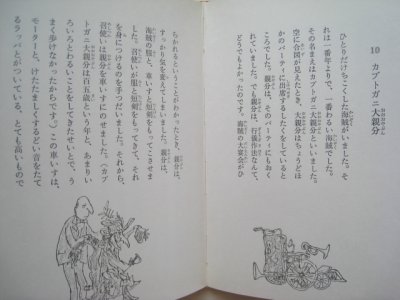 10 カブトガニ大親分
ひとりだけちこくした海賊がいました。そ
れは一番年よりで、一番わるい海賊でした。
その名まえはカブトガニ大親分といいました。
空に合図が見えたとき、大親分はちょうどほ
かのパーティに出席するしたくをしていると
ころでした。親分は、そのパーティにもおく
れていました。でも親分は、行儀作法なんて、
どうでもよかったのです。海賊の大宴会がひ
らかれるということがわかったとき、親分は、
すっかり気を変えてしまいました。親分は、
海賊の服と、車いすと短剣をもってこさせま
した。召使いが服と短剣をもってきて、それ
を身につけるのを手つだいました。それから、
召使いは親分を車いすにのせました。(カブ
トガニ大親分は百五歳という年と、あまりい
ろいろとわるいことをしてきたせいとで、う
まく歩けなかったからです。)この車いすは、
モーターと、けたたましくするどい音をたて
るラッパとがついている、とても高いもので